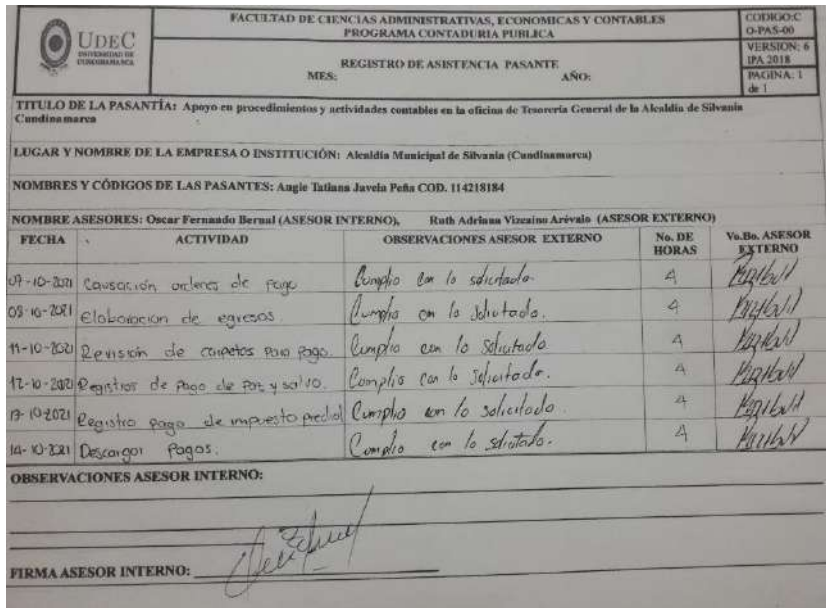 UDEC
UNIVERSIDAD DE
CUNDINAMARCA
FACULTAD DE CIENCIAS ADMINISTRATIVAS, ECONOMICAS Y CONTABLES
PROGRAMA CONTADURIA PUBLICA
REGISTRO DE ASISTENCIA PASANTE
MES: AÑO:
CODIGO:C
O-PAS-00
VERSION: 6
IPA 2018
PAGINA: 1
de 1
TITULO DE LA PASANTÍA: Apoyo en procedimientos y actividades contables en la oficina de Tesorería General de la Alcaldía de Silvania
Cundinamarca
LUGAR Y NOMBRE DE LA EMPRESA O INSTITUCIÓN: Alcaldía Municipal de Silvania (Cundinamarca)
NOMBRES Y CÓDIGOS DE LAS PASANTES: Angie Tatiana Javela Peña COD. 114218184
NOMBRE ASESORES: Oscar Fernando Bernal (ASESOR INTERNO), Ruth Adriana Vizcaino Arévalo (ASESOR EXTERNO)
FECHA ACTIVIDAD OBSERVACIONES ASESOR EXTERNO No. DE HORAS Vo.Bo. ASESOR EXTERNO
07-10-2021 Causación ordenes de pago Cumplio con lo solicitado. 4
08-10-2021 Elaboracion de egresos. Cumplio con lo solicitado. 4
11-10-2021 Revisión de carpetas para pago. Cumplio con lo solicitado 4
12-10-2021 Registros de pago de paz y salvo. Cumplio con lo solicitado. 4
13-10-2021 Registro pago de impuesto predial Cumplio con lo solicitado. 4
14-10-2021 Descargar pagos. Cumplio con lo solicitado. 4
OBSERVACIONES ASESOR INTERNO:
FIRMA ASESOR INTERNO: